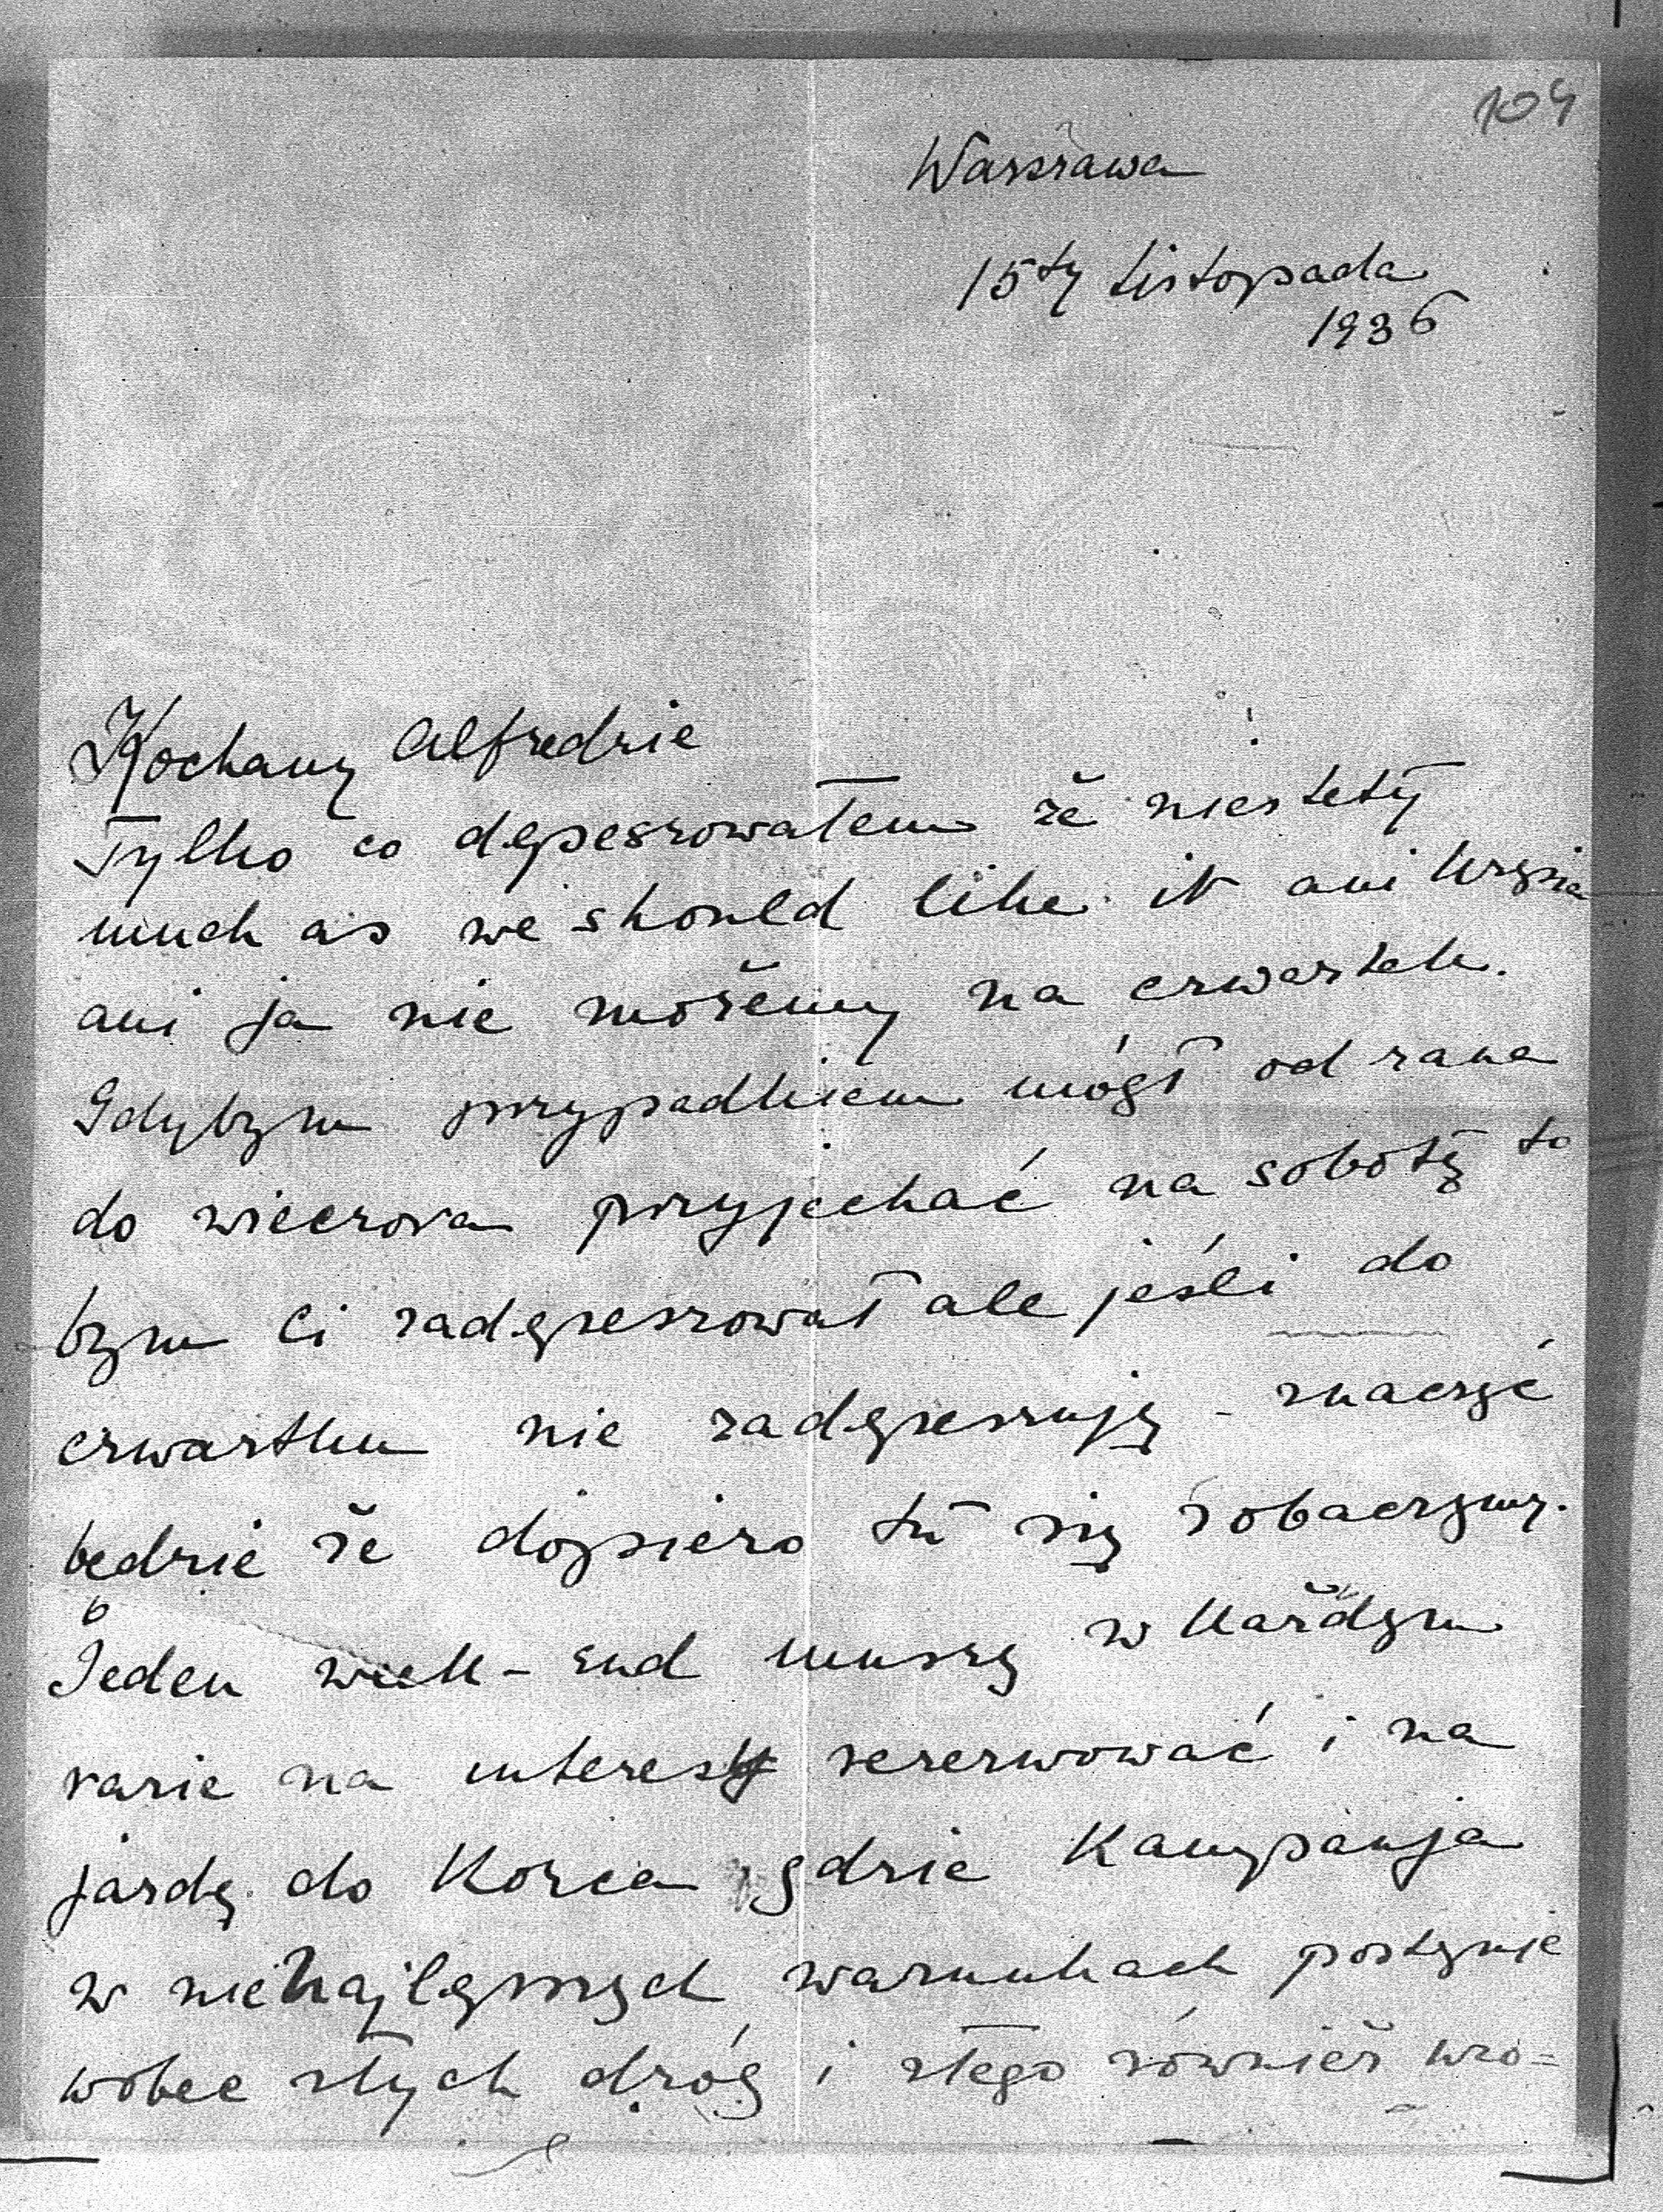 104
Warszawa
15ty Listopada
1936
Kochany Alfredzie !
Tylko co depeszowałem że niestety
much as we should like it ani Urszia
ani ja nie możemy na czwartek.
Gdybym przypadkiem mógł od rana
do wieczora przyjechać na sobotę to
bym Ci zadepeszował ale jeśli do
czwartku nie zadepeszuję - znaczyć
będzie że dopiero tu się zobaczymy.
Jeden week-end muszę w każdym
razie na interesy rezerwować i na
jazdę do Korca gdzie Kampanja
w nienajlepszych warunkach postępuje
wobec złych dróg i złego również uro=